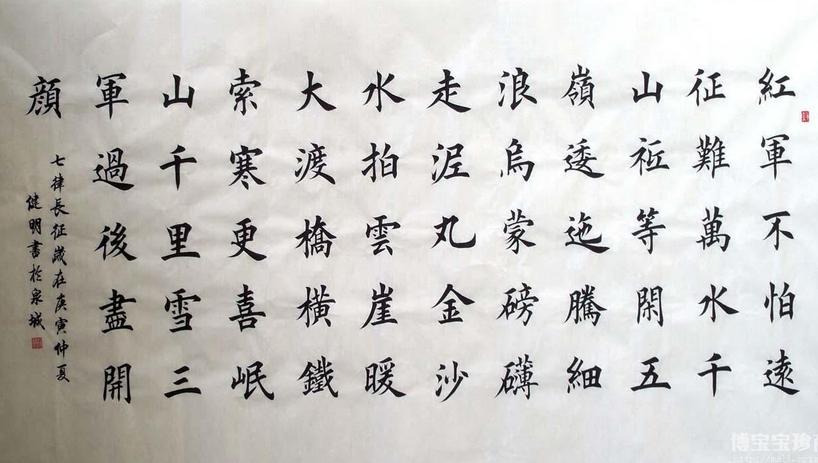 紅軍不怕遠
征難萬水千
山衹等閑五
嶺逶迤騰細
浪烏蒙磅礴
走泥丸金沙
水拍雲崖暖
大渡橋橫鐵
索寒更喜岷
山千里雪三
軍過後盡開
顔
七律長征歲在庚寅仲夏
健明書於泉城
博宝宝珍商